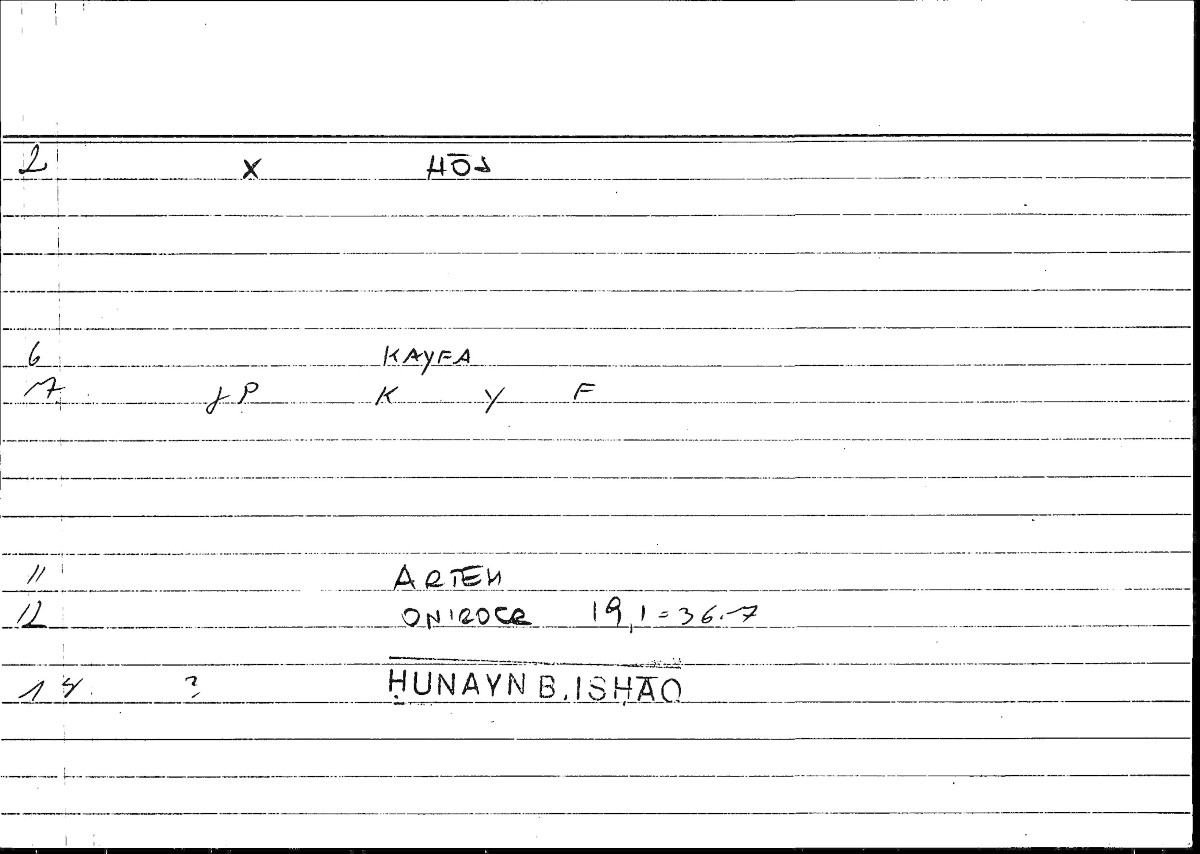 2 X HŌS
6 KAYFA
7. JP K Y F
11 ARTEM
12 ONIROCR 19,1=36.7
14. ? ḤUNAYN B. ISḤĀQ